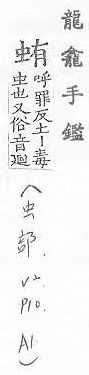 龍龕手鑑
蛕呼罪反土丨毒
虫也又俗音廻
(虫部.
V2.
P10.
A1.)